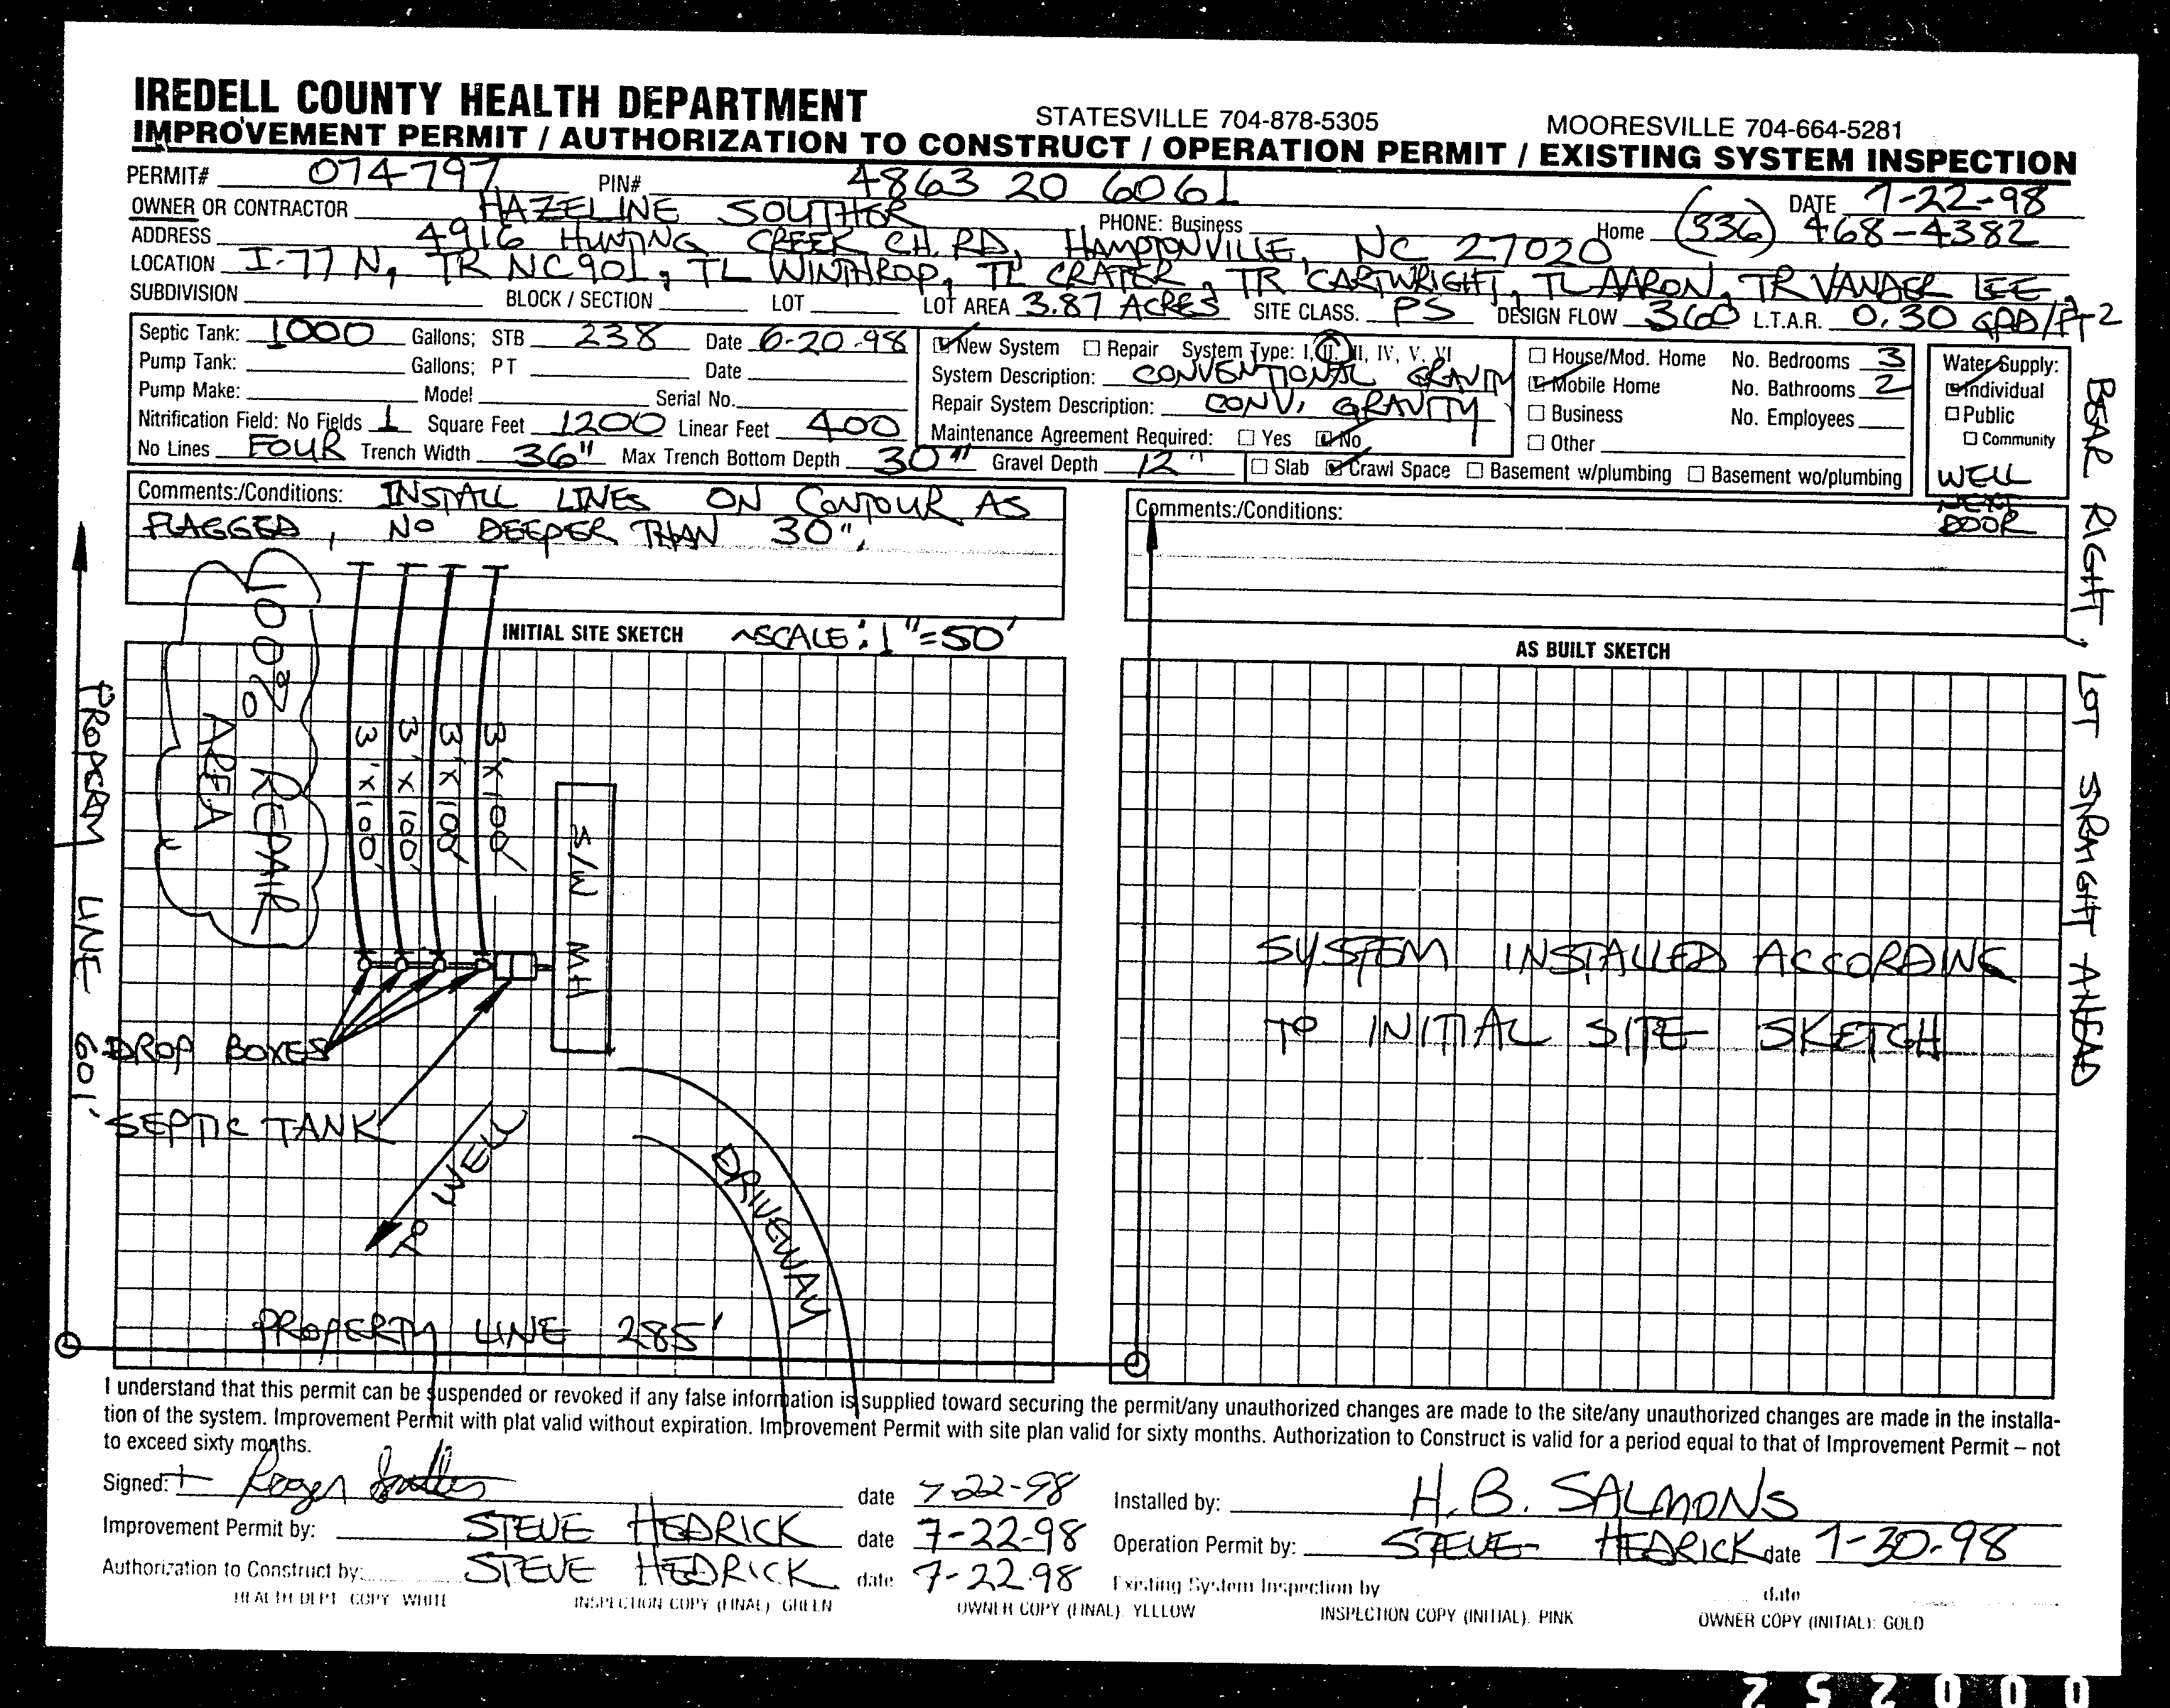 IREDELL COUNTY HEALTH DEPARTMENT STATESVILLE 704-878-5305 MOORESVILLE 704-664-5281
IMPROVEMENT PERMIT / AUTHORIZATION TO CONSTRUCT / OPERATION PERMIT / EXISTING SYSTEM INSPECTION
PERMIT# 074797 PIN# 4863 20 6061 DATE 7-22-98
OWNER OR CONTRACTOR HAZELINE PHONE: Business Home (336) 468-4382
ADDRESS 4916 HUNTING CREEK CH. RD, HAMPTONVILLE, NC 27020
LOCATION I-77 N, TR NC 901, TL WINTHROP, TL CRATER, TR CARTWRIGHT, TL AARON, TR VANDER LEE,
SUBDIVISION BLOCK / SECTION LOT LOT AREA 3.87 ACRES SITE CLASS. PS DESIGN FLOW 360 L.T.A.R. 0.30 GPD/FT2
BEAR RIGHT, LOT STRAIGHT AHEAD
Septic Tank: 1000 Gallons; STB 238 Date 6-20-98
Pump Tank: Gallons; PT Date
Pump Make: Model Serial No.
Nitrification Field: No Fields 1 Square Feet 1200 Linear Feet 400
No Lines FOUR Trench Width 36" Max Trench Bottom Depth 30" Gravel Depth 12"
New System Repair System Type: I, II, III, IV, V, VI
System Description: CONVENTIONAL GRAVITY
Repair System Description: CONV. GRAVITY
Maintenance Agreement Required: Yes No
Slab Crawl Space Basement w/plumbing Basement wo/plumbing
House/Mod. Home No. Bedrooms 3
Mobile Home No. Bathrooms 2
Business No. Employees
Other
Water Supply:
Individual
Public
Community
WELL
NEXT
DOOR
Comments:/Conditions: INSTALL LINES ON CONTOUR AS
FLAGGED, NO DEEPER THAN 30".
Comments:/Conditions:
INITIAL SITE SKETCH ~SCALE: 1"=50'
100% REPAIR
AREA
3'X100'
3'X100'
3'X100'
3'X100'
S/W MH
DROP BOXES
SEPTIC TANK
TO WELL
DRIVEWAY
PROPERTY LINE 601'
PROPERTY LINE 285'
AS BUILT SKETCH
SYSTEM INSTALLED ACCORDING
TO INITIAL SITE SKETCH
I understand that this permit can be suspended or revoked if any false information is supplied toward securing the permit/any unauthorized changes are made to the site/any unauthorized changes are made in the installa-
tion of the system. Improvement Permit with plat valid without expiration. Improvement Permit with site plan valid for sixty months. Authorization to Construct is valid for a period equal to that of Improvement Permit – not
to exceed sixty months.
Signed: Roger date 7-22-98 Installed by: H.B. SALMONS
Improvement Permit by: STEVE HEDRICK date 7-22-98 Operation Permit by: STEVE HEDRICK date 7-30-98
Authorization to Construct by: STEVE HEDRICK date 7-22-98 Existing System Inspection by date
HEALTH DEPT. COPY WHITE INSPECTION COPY (FINAL) GREEN OWNER COPY (FINAL). YELLOW INSPECTION COPY (INITIAL). PINK OWNER COPY (INITIAL): GOLD
2 5 2 0 0 0